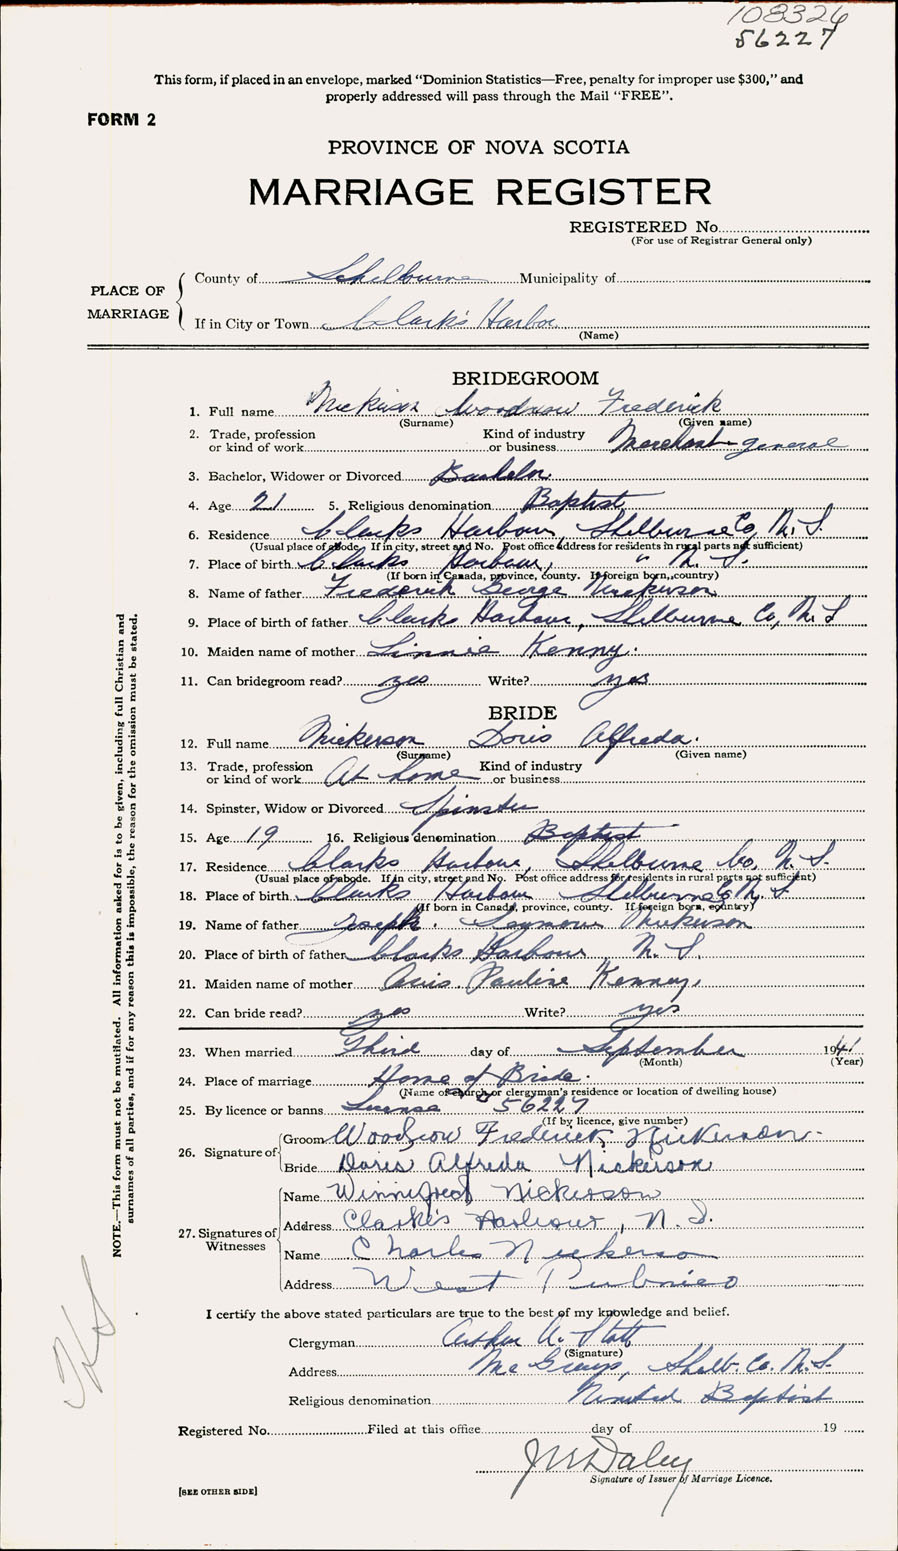 108326
56227
This form, if placed in an envelope, marked "Dominion Statistics—Free, penalty for improper use $300," and
properly addressed will pass through the Mail "FREE".
FORM 2
PROVINCE OF NOVA SCOTIA
MARRIAGE REGISTER
REGISTERED No.
(For use of Registrar General only)
PLACE OF MARRIAGE
County of Schelburne Municipality of
If in City or Town Clark's Harbor
(Name)
BRIDEGROOM
1. Full name Nickerson Woodrow Frederick
(Surname) (Given name)
2. Trade, profession or kind of work Kind of industry or business Merchant general
3. Bachelor, Widower or Divorced Bachelor
4. Age 21 5. Religious denomination Baptist
6. Residence Clarks Harbour, Shelburne Co, N. S.
(Usual place of abode. If in city, street and No. Post office address for residents in rural parts not sufficient)
7. Place of birth Clarks Harbour, " N. S.
(If born in Canada, province, county. If foreign born, country)
8. Name of father Frederick George Nickerson
9. Place of birth of father Clarks Harbour, Shelburne Co, N. S
10. Maiden name of mother Linnie Kenny.
11. Can bridegroom read? yes Write? yes
BRIDE
12. Full name Nickerson Doris Alfreda.
(Surname) (Given name)
13. Trade, profession or kind of work At home Kind of industry or business
14. Spinster, Widow or Divorced Spinster
15. Age 19 16. Religious denomination Baptist
17. Residence Clarks Harbour, Shelburne Co, N. S.
(Usual place of abode. If in city, street and No. Post office address for residents in rural parts not sufficient)
18. Place of birth Clarks Harbour Shelburne Co N. S
(If born in Canada, province, county. If foreign born, country)
19. Name of father Joseph. Seymour Nickerson
20. Place of birth of father Clarks Harbour, N. S.
21. Maiden name of mother Pauline Kenney,
22. Can bride read? yes Write? yes
23. When married Third day of September 1941
(Month) (Year)
24. Place of marriage Home of Bride.
(Name of church or clergyman's residence or location of dwelling house)
25. By licence or banns License 56227
(If by licence, give number)
26. Signature of
Groom Woodrow Frederick Nickerson.
Bride Doris Alfreda Nickerson
27. Signatures of Witnesses
Name Winnifred Nickerson
Address Clarke's Harbour, N. S.
Name Charles Nickerson
Address West Pubnico
I certify the above stated particulars are true to the best of my knowledge and belief.
Clergyman Arthur A.
(Signature)
Address Shelb. Co. N. S.
Religious denomination United Baptist
Registered No. Filed at this office day of 19
Daley
Signature of Issuer of Marriage Licence.
[SEE OTHER SIDE]
NOTE.—This form must not be mutilated. All information asked for is to be given, including full Christian and
surnames of all parties, and if for any reason this is impossible, the reason for the omission must be stated.